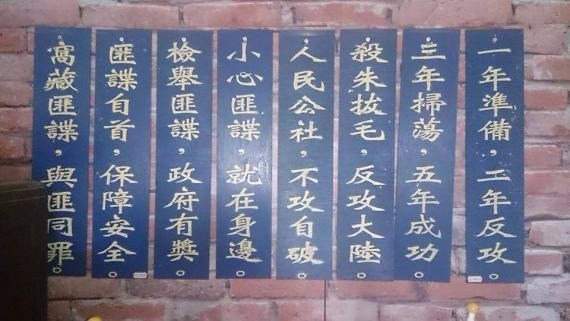 一年準備，二年反攻
三年掃蕩，五年成功
殺朱拔毛，反攻大陸
人民公社，不攻自破
小心匪諜，就在身邊
檢舉匪諜，政府有獎
匪諜自首，保障安全
窩藏匪諜，與匪同罪